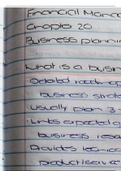 Financial Mana
Chapter 20
Business plannin
What is a busin
Detailed roadmap
business strate
usually plan 3
Links expected
business resou
Provides
product